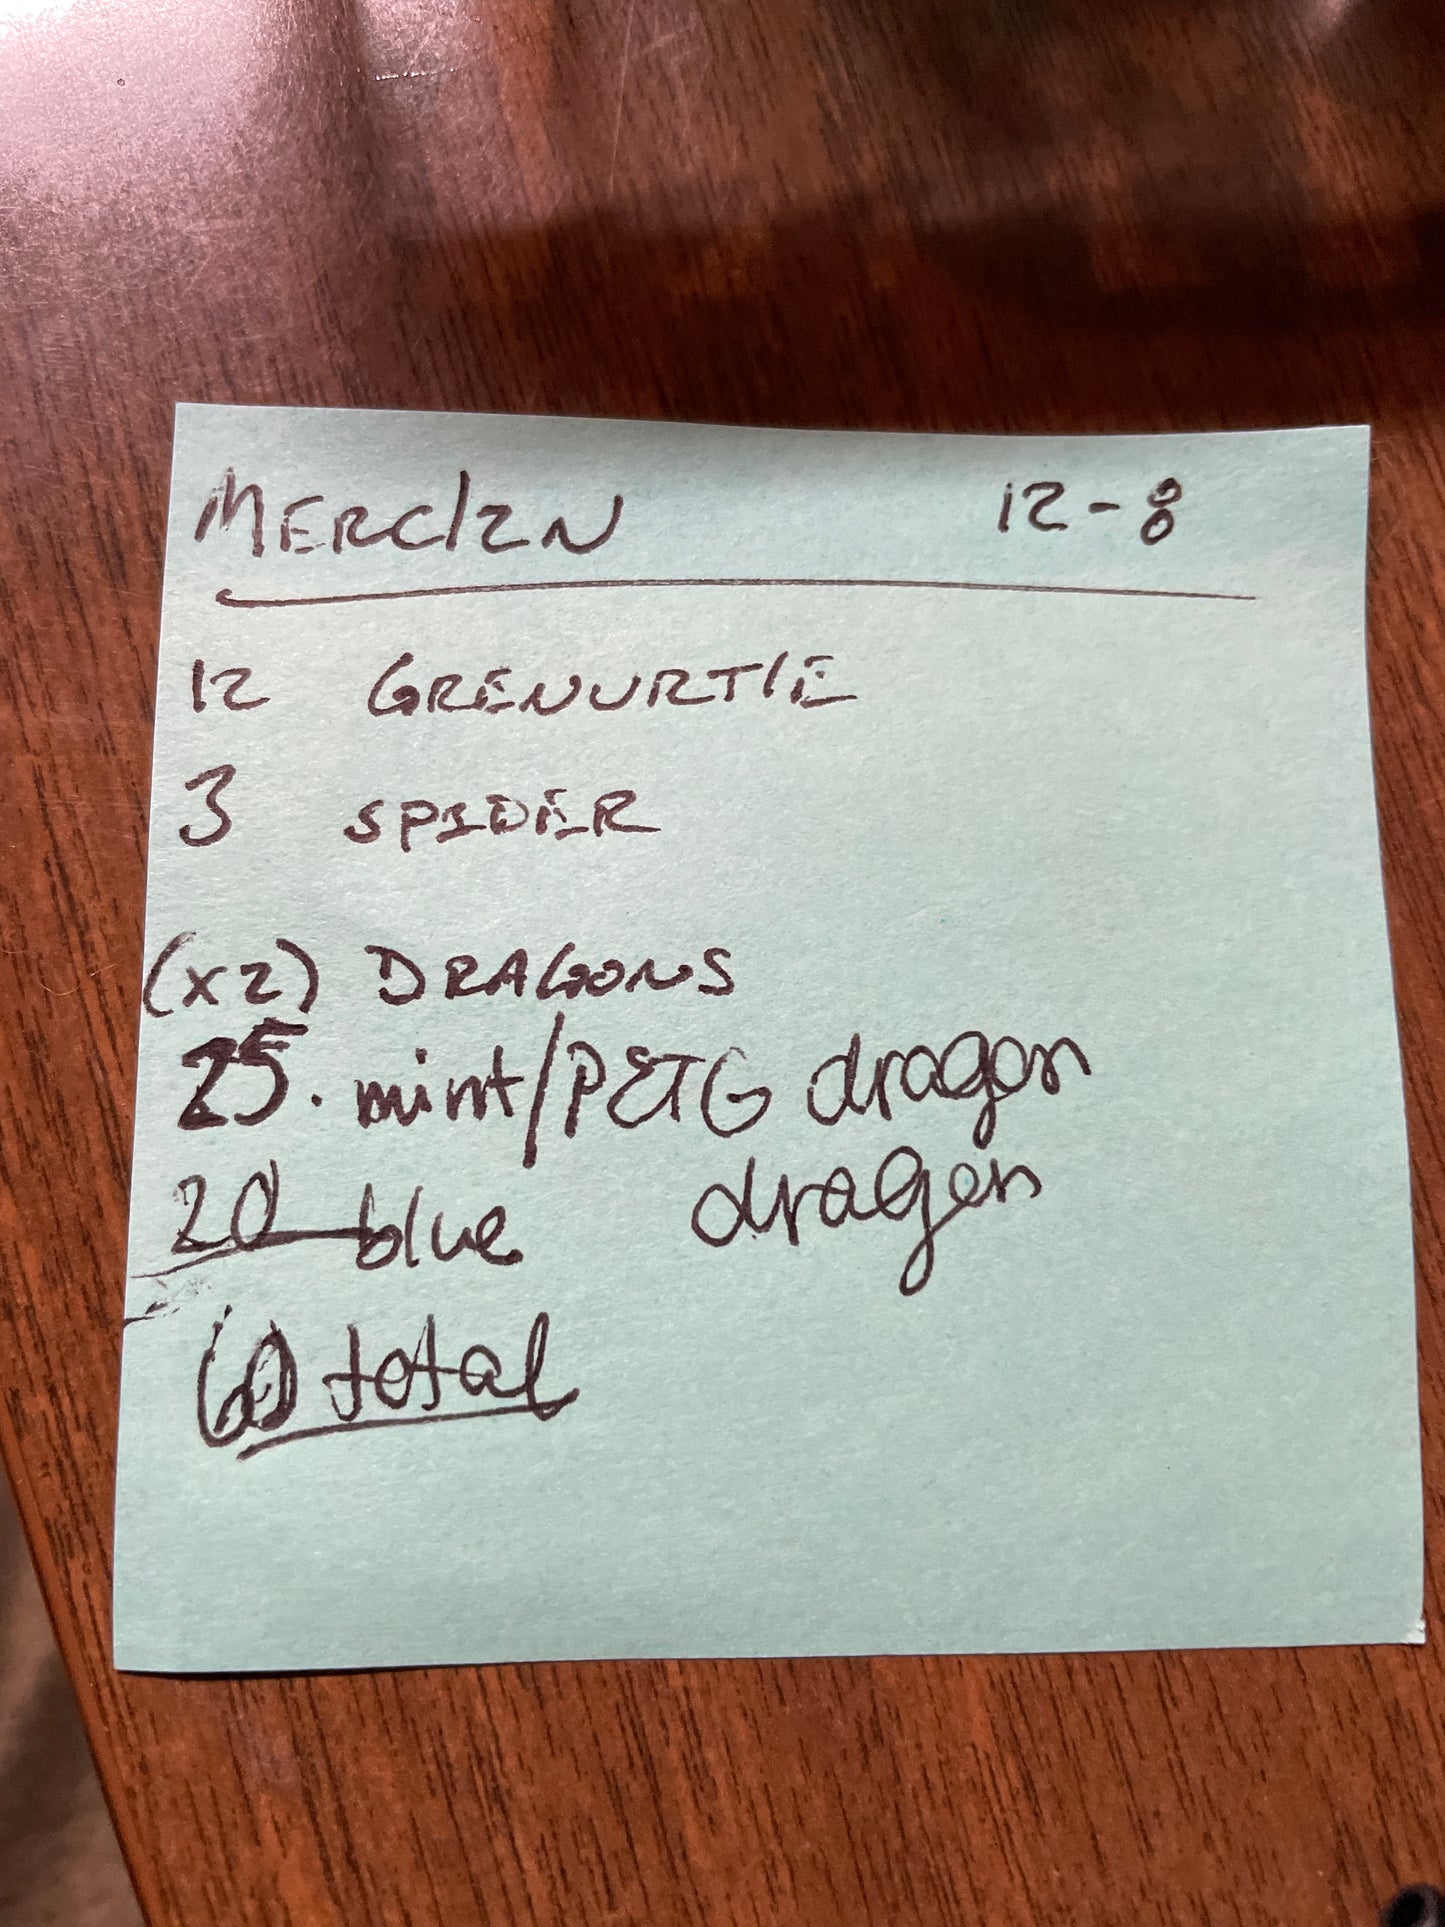 MERCIZN 12-8
12 GRENURTLE
3 SPIDER
(x2) DRAGONS
25. mint/PETG dragon
20 blue dragon
60 total